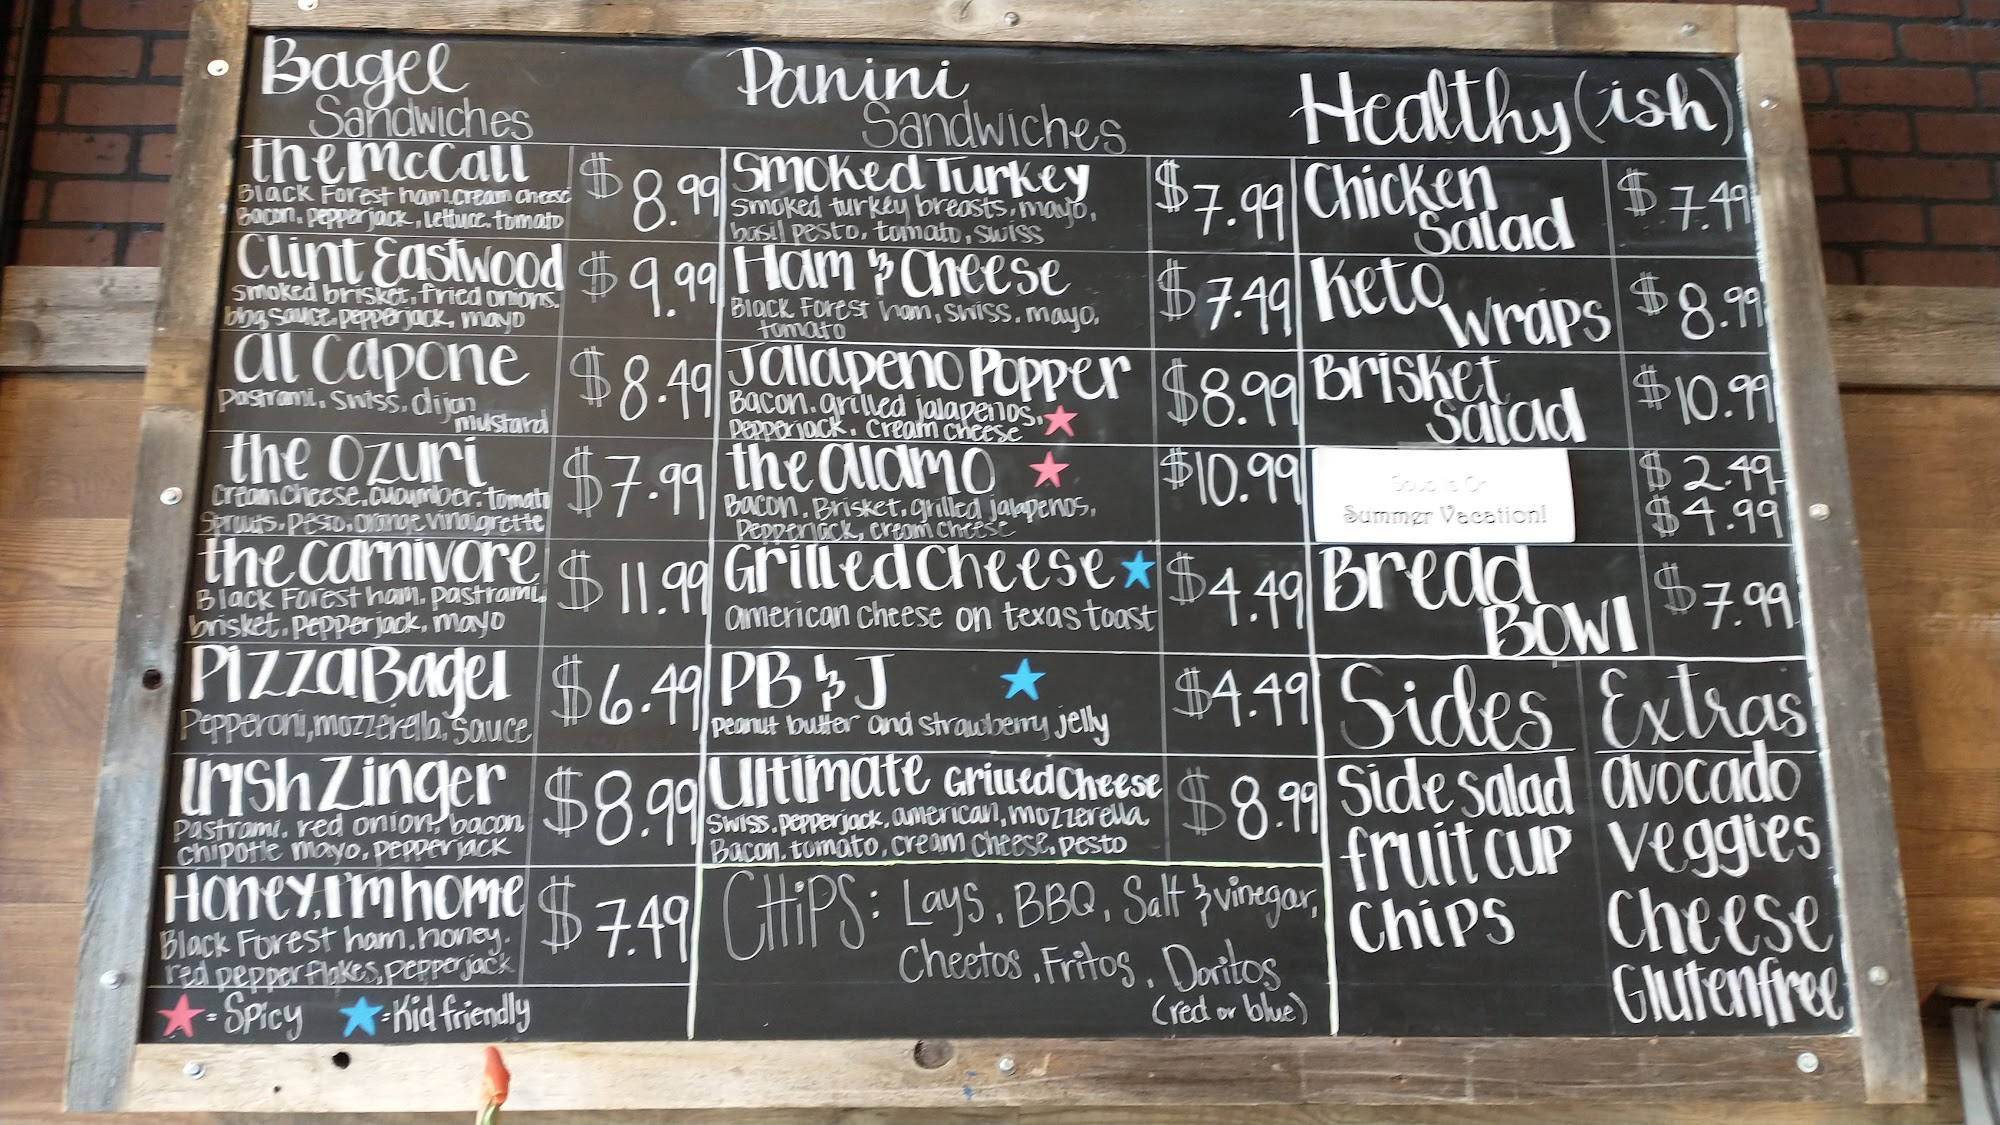 Bagel
Sandwiches
the McCall $8.99
Black Forest ham, cream cheese
Bacon, pepperjack, lettuce, tomato
Clint Eastwood $9.99
smoked brisket, fried onions,
bbq sauce, pepperjack, mayo
Al Capone $8.49
Pastrami, swiss, dijon
mustard
the Ozuri $7.99
Cream cheese, cucumber, tomato
Sprouts, Pesto, orange vinaigrette
the Carnivore $11.99
Black Forest ham, pastrami,
brisket, pepperjack, mayo
Pizza Bagel $6.49
Pepperoni, mozzerella, sauce
Irish Zinger $8.99
Pastrami, red onion, bacon,
chipotle mayo, pepperjack
Honey, I'm home $7.49
Black Forest ham, honey,
red pepper flakes, pepperjack
= Spicy = Kid friendly
Panini
Sandwiches
Smoked Turkey $7.99
smoked turkey breasts, mayo,
basil pesto, tomato, swiss
Ham & Cheese $7.49
Black Forest ham, swiss, mayo,
tomato
Jalapeno Popper $8.99
Bacon, grilled jalapenos,
Pepperjack, cream cheese
the Alamo $10.99
Bacon, Brisket, grilled jalapenos,
Pepperjack, cream cheese
Grilled Cheese $4.49
american cheese on texas toast
PB & J $4.49
peanut butter and strawberry jelly
Ultimate Grilled Cheese $8.99
Swiss, pepperjack, american, mozzerella,
Bacon, tomato, cream cheese, pesto
CHiPS: Lays, BBQ, Salt & vinegar,
Cheetos, Fritos, Doritos
(red or blue)
Healthy(ish)
Chicken
Salad $7.49
Keto
Wraps $8.99
Brisket
Salad $10.99
Soup is On
Summer Vacation!
$2.49
$4.99
Bread
Bowl $7.99
Sides
Side salad
fruit cup
Chips
Extras
avocado
veggies
Cheese
Glutenfree